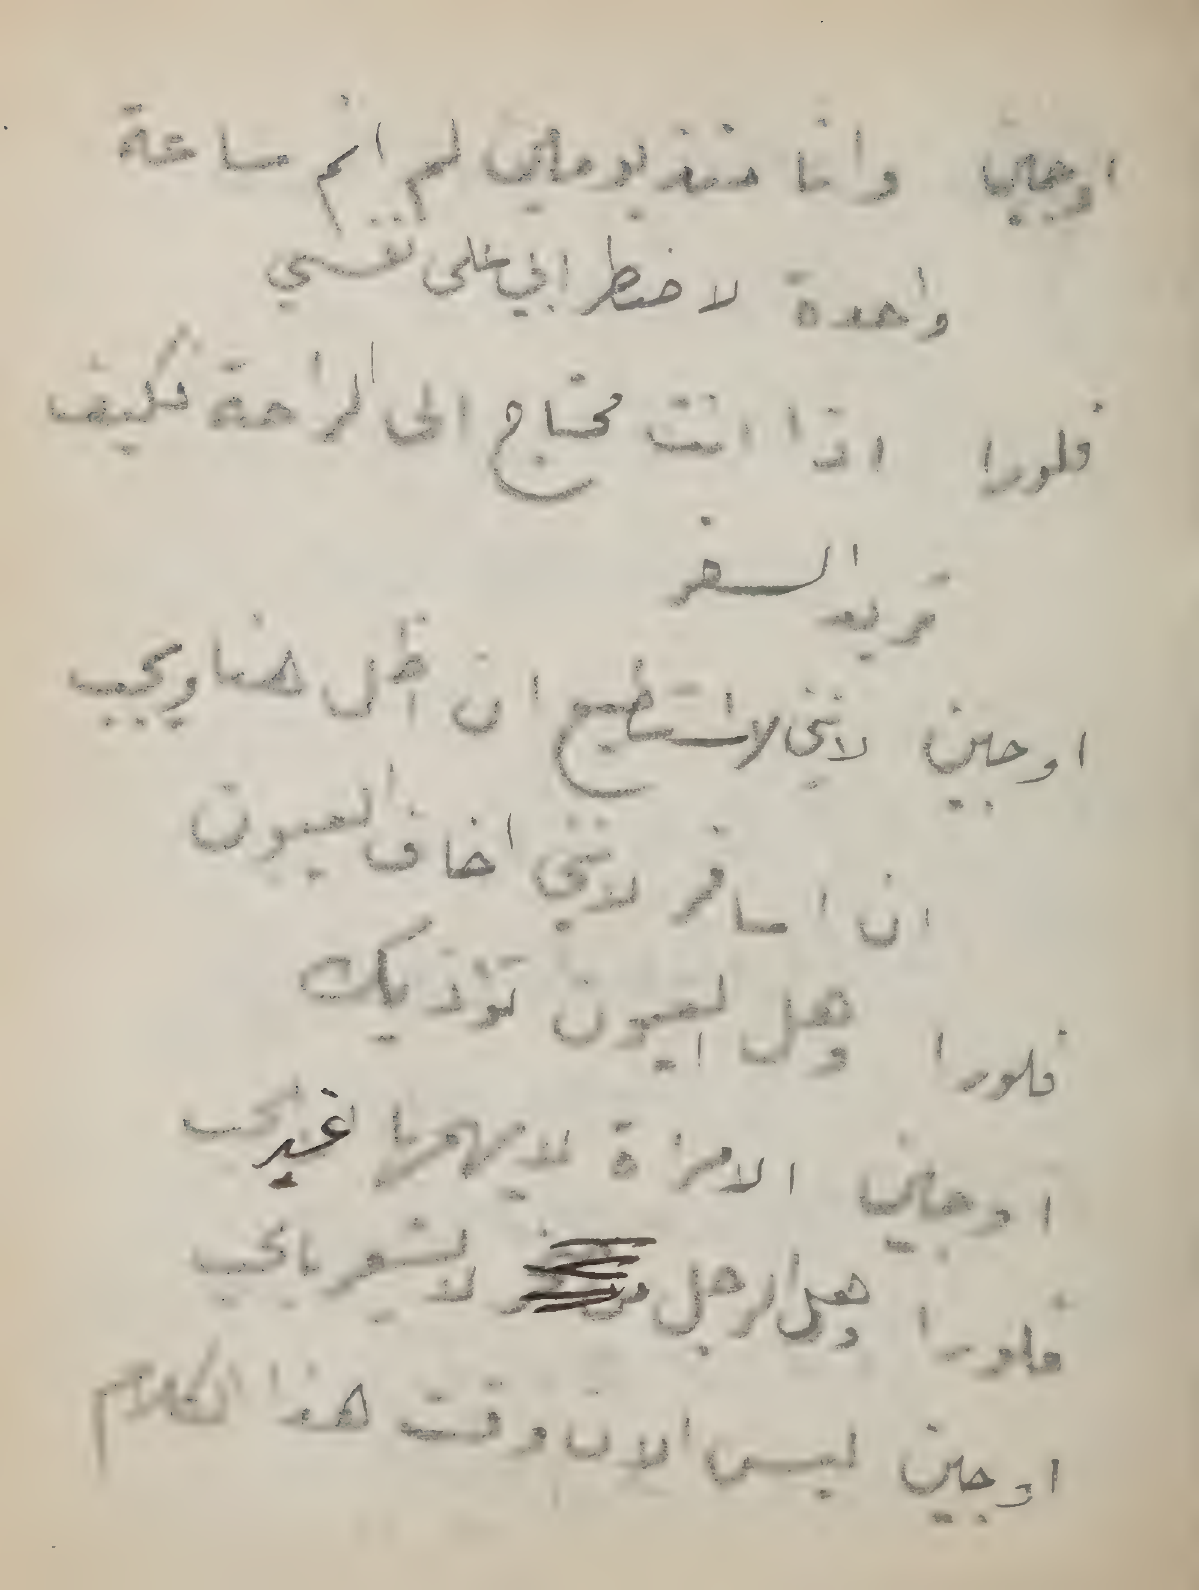 اوجين وانا منذ يومين لم انم ساعة
واحدة لاضطرابي على نفسي
فلورا اذا انت محتاج الى الراحة فكيف
تريد السفر
اوجين لانني لا استطيع ان اظل هنا ويجب
ان اسافر لانني اخاف العيون
فلورا وهل العيون تؤذيك
اوجين الامراة لا يهمها غير الحب
فلورا وهل الرجل لا يشعر بالحب
اوجين ليس الان وقت هذا الكلام